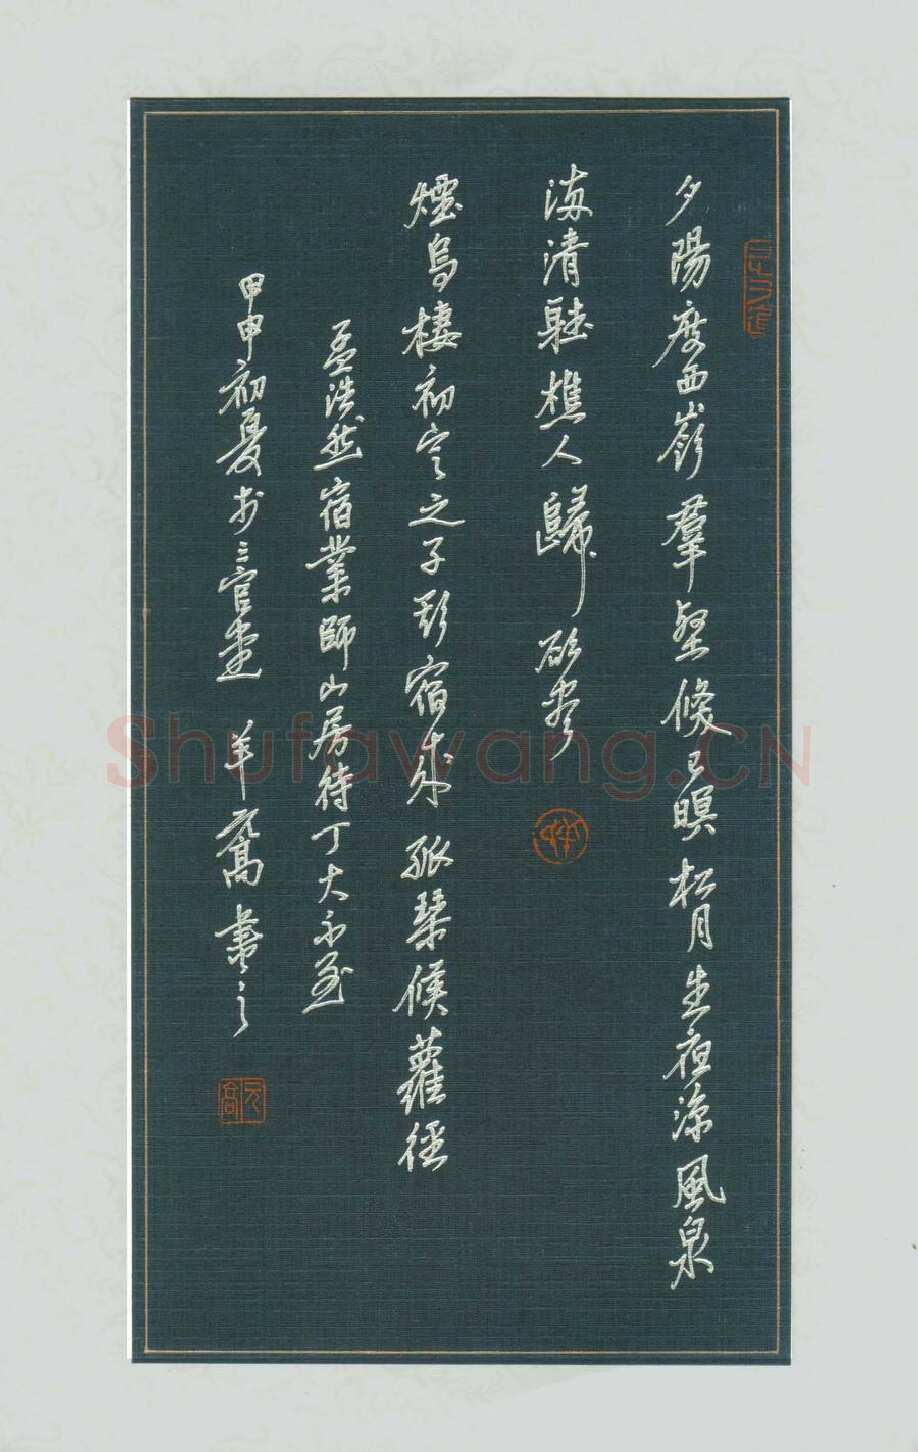 夕陽度西嶺羣壑倏已暝松月生夜涼風泉
滿清聽樵人歸欲盡
煙鳥棲初定之子期宿來孤琴候蘿徑
孟浩然宿業師山房待丁大不至
甲申初夏於三官堂 書之
Shufawang.CN